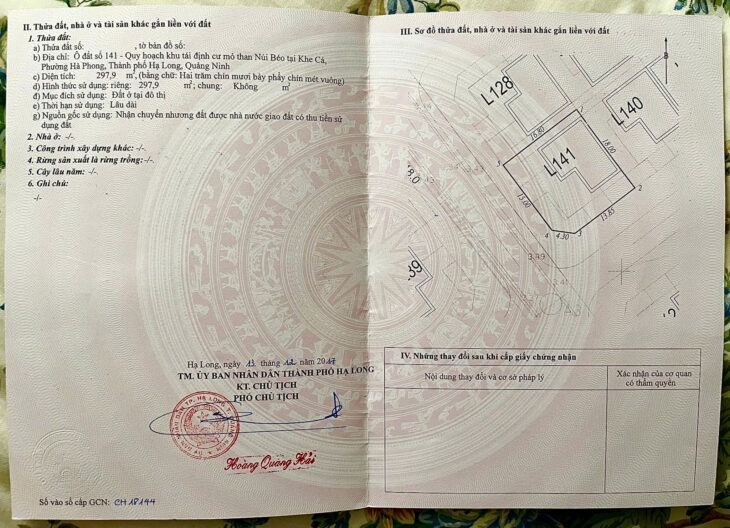 II. Thửa đất, nhà ở và tài sản khác gắn liền với đất
1. Thửa đất:
a) Thửa đất số: , tờ bản đồ số:
b) Địa chỉ: Ô đất số 141 - Quy hoạch khu tái định cư mỏ than Núi Béo tại Khe Cá,
Phường Hà Phong, Thành phố Hạ Long, Quảng Ninh
c) Diện tích: 297,9 m², (bằng chữ: Hai trăm chín mươi bảy phẩy chín mét vuông)
d) Hình thức sử dụng: riêng: 297,9 m²; chung: Không m²
đ) Mục đích sử dụng: Đất ở tại đô thị
e) Thời hạn sử dụng: Lâu dài
g) Nguồn gốc sử dụng: Nhận chuyển nhượng đất được nhà nước giao đất có thu tiền sử
dụng đất
2. Nhà ở: -/-
3. Công trình xây dựng khác: -/-
4. Rừng sản xuất là rừng trồng:-/-
5. Cây lâu năm: -/-
6. Ghi chú:
-/-
Hạ Long, ngày 13 tháng 12 năm 2017
TM. ỦY BAN NHÂN DÂN THÀNH PHỐ HẠ LONG
KT. CHỦ TỊCH
PHÓ CHỦ TỊCH
Hoàng Quang Hải
Số vào sổ cấp GCN: CH18144
III. Sơ đồ thửa đất, nhà ở và tài sản khác gắn liền với đất
B
L128
L140
L141
16.80
18.00
15.00
13.85
4.30
1
2
3
4
5
8.0
39
3.99
3.41
IV. Những thay đổi sau khi cấp giấy chứng nhận
Nội dung thay đổi và cơ sở pháp lý
Xác nhận của cơ quan
có thẩm quyền